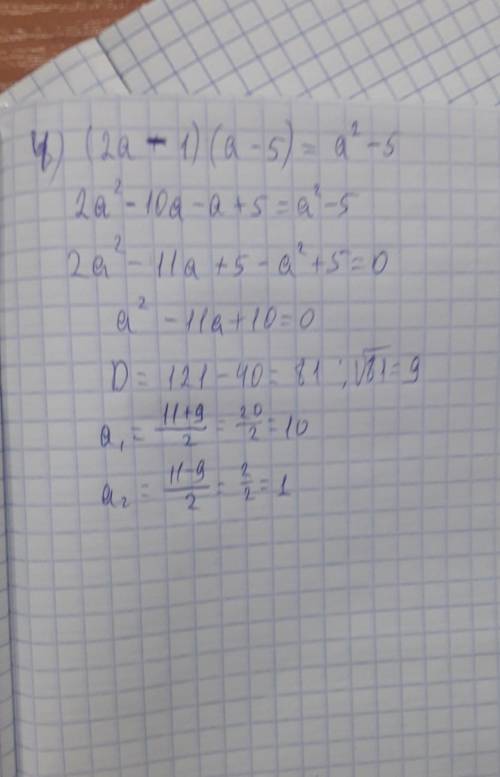 4) (2a - 1)(a - 5) = a² - 5
2a² - 10a - a + 5 = a² - 5
2a² - 11a + 5 - a² + 5 = 0
a² - 11a + 10 = 0
D = 121 - 40 = 81 ; √81 = 9
a₁ = (11+9)/2 = 20/2 = 10
a₂ = (11-9)/2 = 2/2 = 1